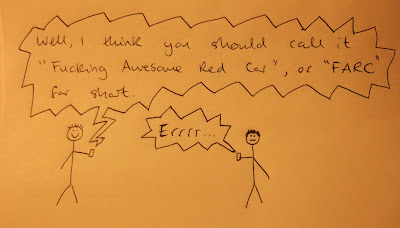 Well, I think you should call it
"Fucking Awesome Red Car", or "FARC"
for short.
Errrr...